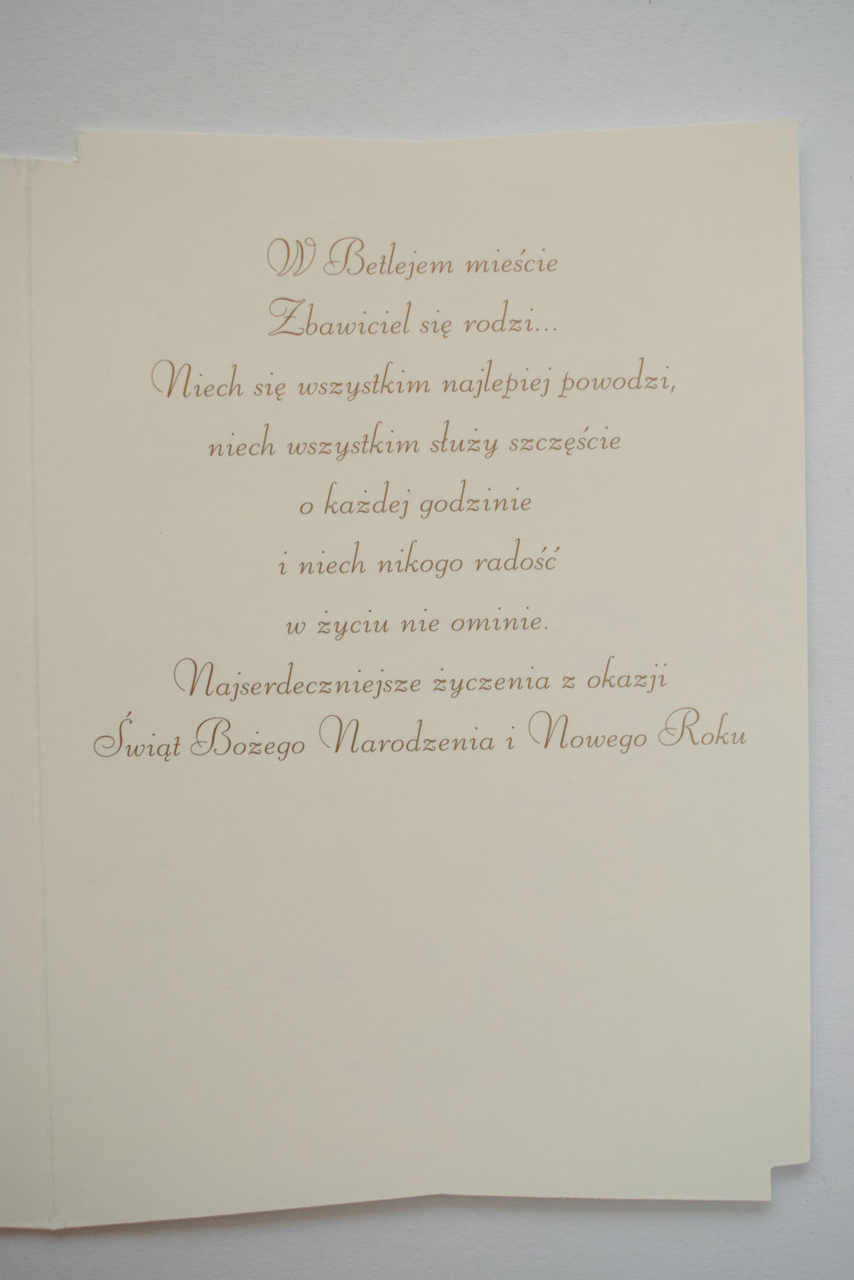 W Betlejem mieście
Zbawiciel się rodzi...
Niech się wszystkim najlepiej powodzi,
niech wszystkim służy szczęście
o każdej godzinie
i niech nikogo radość
w życiu nie ominie.
Najserdeczniejsze życzenia z okazji
Świąt Bożego Narodzenia i Nowego Roku